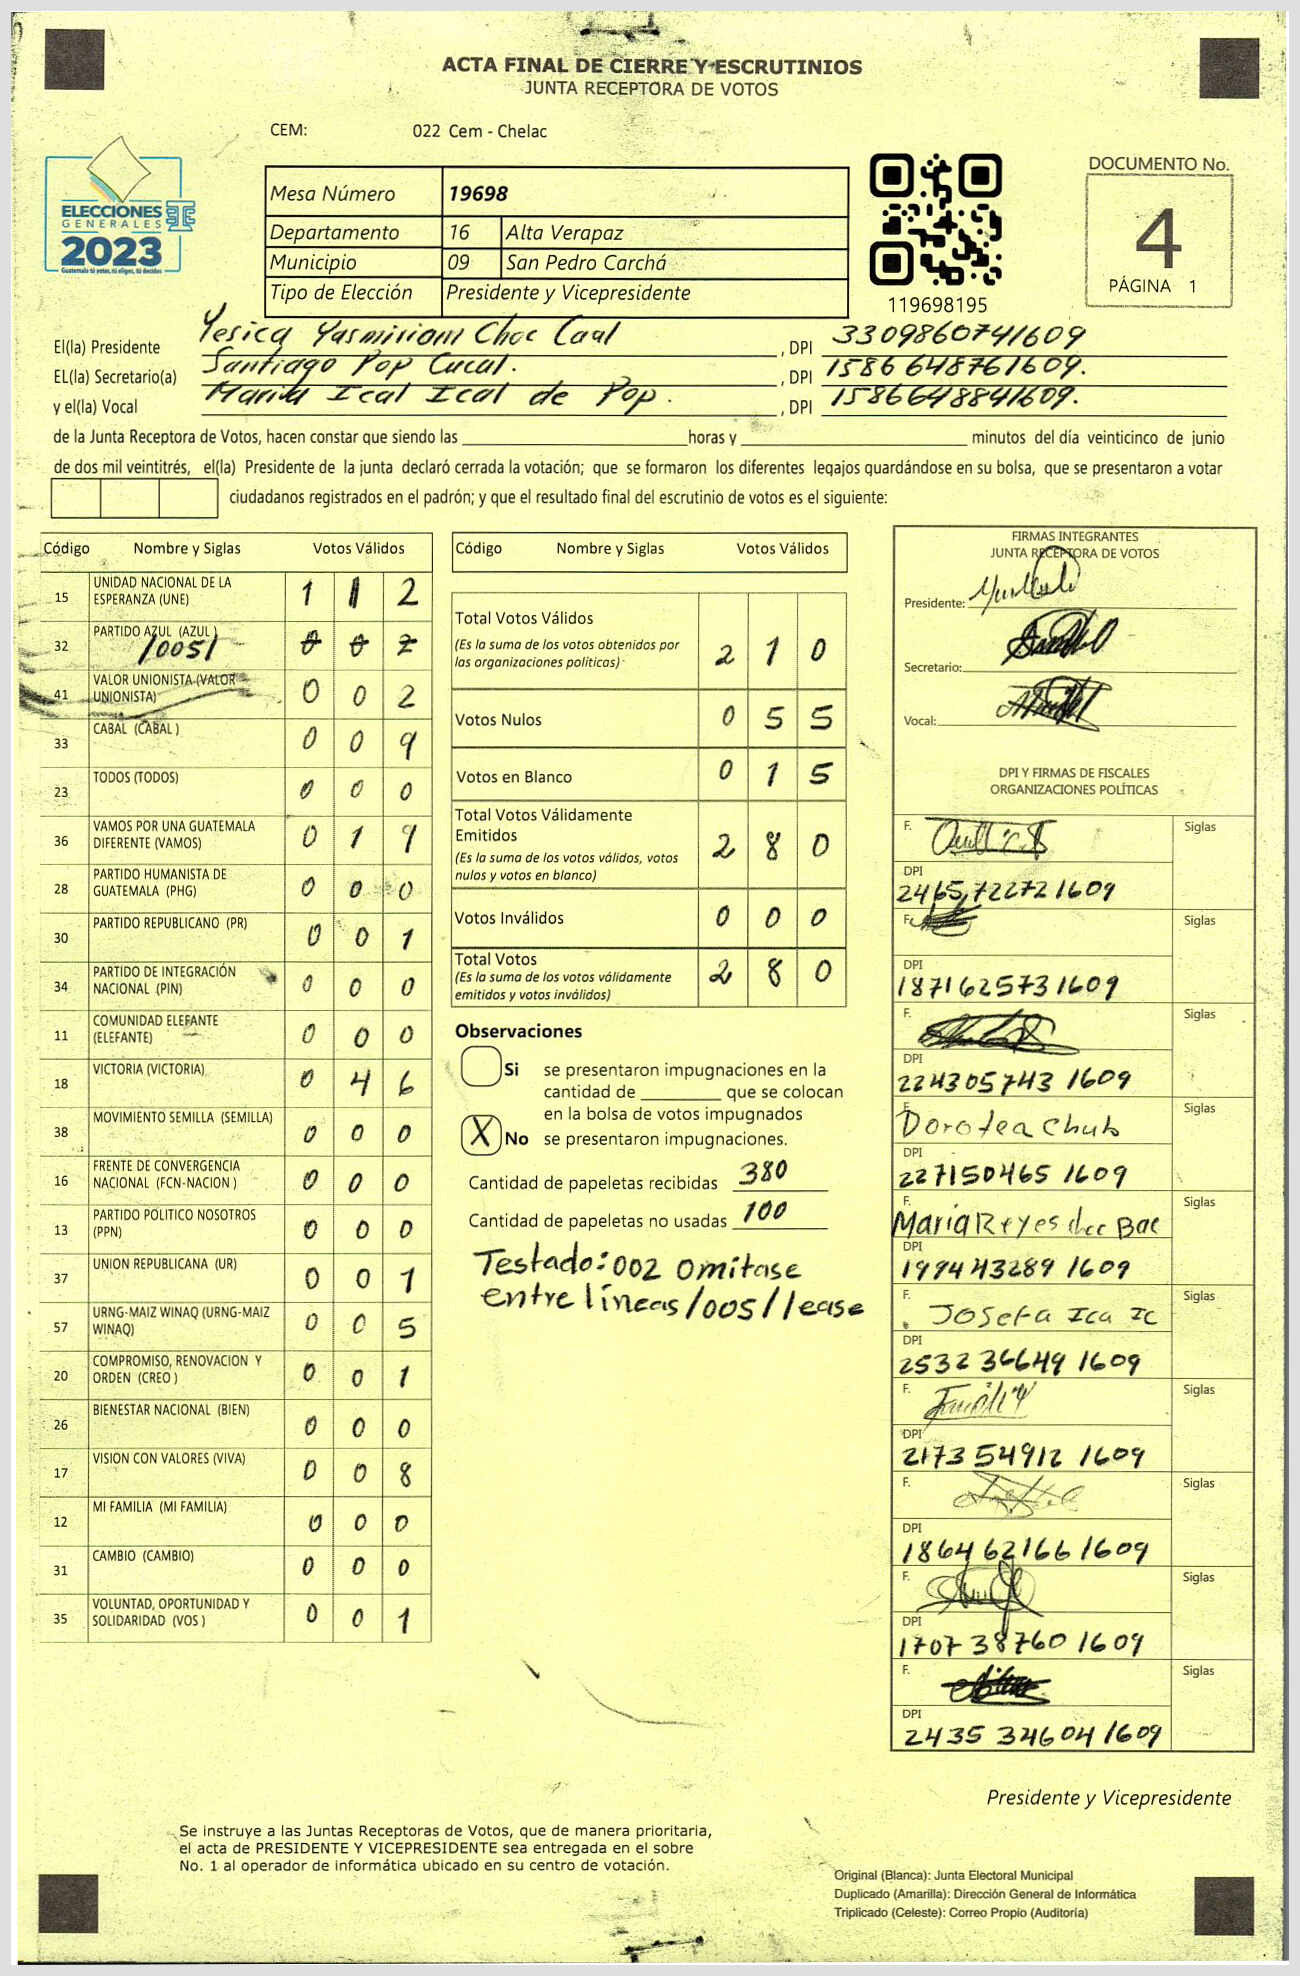 ACTA FINAL DE CIERRE Y ESCRUTINIOS
JUNTA RECEPTORA DE VOTOS
CEM: 022 Cem - Chelac
ELECCIONES
GENERALES
2023
Guatemala tú votas, tú eliges, tú decides
Mesa Número 19698
Departamento 16 Alta Verapaz
Municipio 09 San Pedro Carchá
Tipo de Elección Presidente y Vicepresidente
119698195
DOCUMENTO No.
4
PÁGINA 1
El(la) Presidente Yesica Yasmiriam Choc Caal , DPI 3309860741609
EL(la) Secretario(a) Santiago Pop Cucul. , DPI 1586648761609.
y el(la) Vocal Maria Ical Ical de Pop. , DPI 1586648841609.
de la Junta Receptora de Votos, hacen constar que siendo las horas y minutos del día veinticinco de junio
de dos mil veintitrés, el(la) Presidente de la junta declaró cerrada la votación; que se formaron los diferentes legajos guardándose en su bolsa, que se presentaron a votar
ciudadanos registrados en el padrón; y que el resultado final del escrutinio de votos es el siguiente:
Código Nombre y Siglas Votos Válidos
15 UNIDAD NACIONAL DE LA ESPERANZA (UNE) 1 1 2
32 PARTIDO AZUL (AZUL) /005/ 0 0 2
41 VALOR UNIONISTA (VALOR UNIONISTA) 0 0 2
33 CABAL (CABAL ) 0 0 9
23 TODOS (TODOS) 0 0 0
36 VAMOS POR UNA GUATEMALA DIFERENTE (VAMOS) 0 1 9
28 PARTIDO HUMANISTA DE GUATEMALA (PHG) 0 0 0
30 PARTIDO REPUBLICANO (PR) 0 0 1
34 PARTIDO DE INTEGRACIÓN NACIONAL (PIN) 0 0 0
11 COMUNIDAD ELEFANTE (ELEFANTE) 0 0 0
18 VICTORIA (VICTORIA) 0 4 6
38 MOVIMIENTO SEMILLA (SEMILLA) 0 0 0
16 FRENTE DE CONVERGENCIA NACIONAL (FCN-NACION ) 0 0 0
13 PARTIDO POLITICO NOSOTROS (PPN) 0 0 0
37 UNION REPUBLICANA (UR) 0 0 1
57 URNG-MAIZ WINAQ (URNG-MAIZ WINAQ) 0 0 5
20 COMPROMISO, RENOVACION Y ORDEN (CREO ) 0 0 1
26 BIENESTAR NACIONAL (BIEN) 0 0 0
17 VISION CON VALORES (VIVA) 0 0 8
12 MI FAMILIA (MI FAMILIA) 0 0 0
31 CAMBIO (CAMBIO) 0 0 0
35 VOLUNTAD, OPORTUNIDAD Y SOLIDARIDAD (VOS ) 0 0 1
Código Nombre y Siglas Votos Válidos
Total Votos Válidos 2 1 0
(Es la suma de los votos obtenidos por
las organizaciones políticas)
Votos Nulos 0 5 5
Votos en Blanco 0 1 5
Total Votos Válidamente
Emitidos 2 8 0
(Es la suma de los votos válidos, votos
nulos y votos en blanco)
Votos Inválidos 0 0 0
Total Votos 2 8 0
(Es la suma de los votos válidamente
emitidos y votos inválidos)
Observaciones
Si se presentaron impugnaciones en la
cantidad de que se colocan
en la bolsa de votos impugnados
X No se presentaron impugnaciones.
Cantidad de papeletas recibidas 380
Cantidad de papeletas no usadas 100
Testado: 002 omitase
entre líneas /005/ lease
FIRMAS INTEGRANTES
JUNTA RECEPTORA DE VOTOS
Presidente:
Secretario:
Vocal:
DPI Y FIRMAS DE FISCALES
ORGANIZACIONES POLÍTICAS
F. Siglas
DPI
2465722721609
F. Siglas
DPI
1871625731609
F. Siglas
DPI
2243057431609
F. Dorotea Chub Siglas
DPI
2271504651609
F. Maria Reyes choc Bac Siglas
DPI
1994432891609
F. Josefa Ica Ic Siglas
DPI
2532366491609
F. Siglas
DPI
2173549121609
F. Siglas
DPI
1864621661609
F. Siglas
DPI
1707387601609
F. Siglas
DPI
2435346041609
Presidente y Vicepresidente
Se instruye a las Juntas Receptoras de Votos, que de manera prioritaria,
el acta de PRESIDENTE Y VICEPRESIDENTE sea entregada en el sobre
No. 1 al operador de informática ubicado en su centro de votación.
Original (Blanca): Junta Electoral Municipal
Duplicado (Amarilla): Dirección General de Informática
Triplicado (Celeste): Correo Propio (Auditoría)